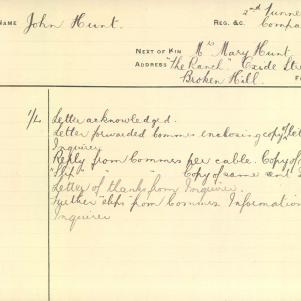 NAME John Hunt
REG. &C. 2nd Tunne
Compa
NEXT OF KIN Mrs Mary Hunt,
ADDRESS "The Ranch" Oxide Stre
Broken Hill.
1/4 Letter acknowledged.
Letter forwarded Commes enclosing copy of let
Inquirer
Reply from Commes per cable. Copy of
"Slip " " Copy of same sent
Letter of thanks from Inquirer.
Further "slips" from Commes Information
Inquirer